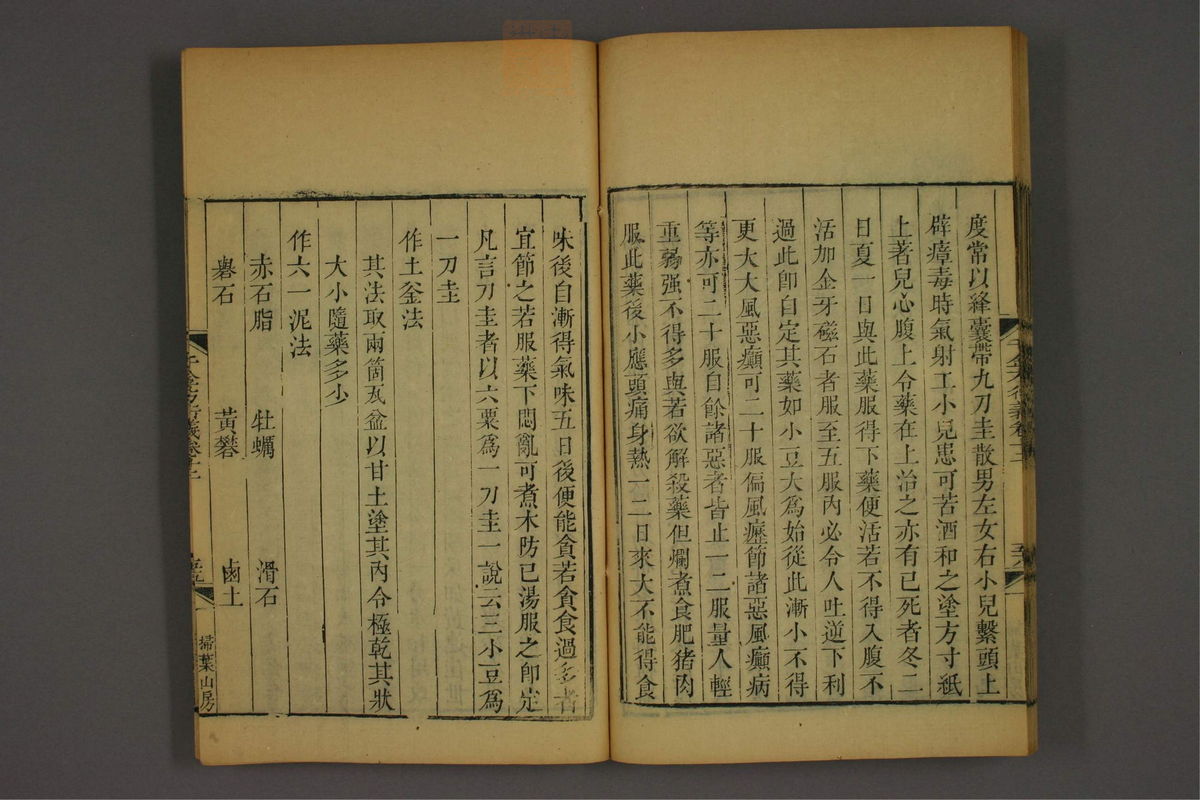 度常以絳囊帶九刀圭散男左女右小兒繫頭上
辟瘴毒時氣射工小兒患可苦酒和之塗方寸紙
上著兒心腹上令藥在上治之亦有已死者冬二
日夏一日與此藥服得下藥便活若不得入腹不
活加金牙磁石者服至五服內必令人吐逆下利
過此卽自定其藥如小豆大爲始從此漸小不得
更大大風惡癩可二十服偏風癧節諸惡風癩病
等亦可二十服自餘諸惡者皆止一二服量人輕
重弱强不得多與若欲解殺藥但爛煮食肥猪肉
服此藥後小應頭痛身熱一二日來大不能得食
味後自漸得氣味五日後便能貪若貪食過多者
宜節之若服藥下悶亂可煮木防已湯服之卽定
凡言刀圭者以六粟爲一刀圭一說云三小豆爲
一刀圭
作土釜法
其法取兩箇瓦盆以甘土塗其內令極乾其狀
大小隨藥多少
作六一泥法
赤石脂 牡蠣 滑石
礜石 黃礬 鹵土
掃葉山房